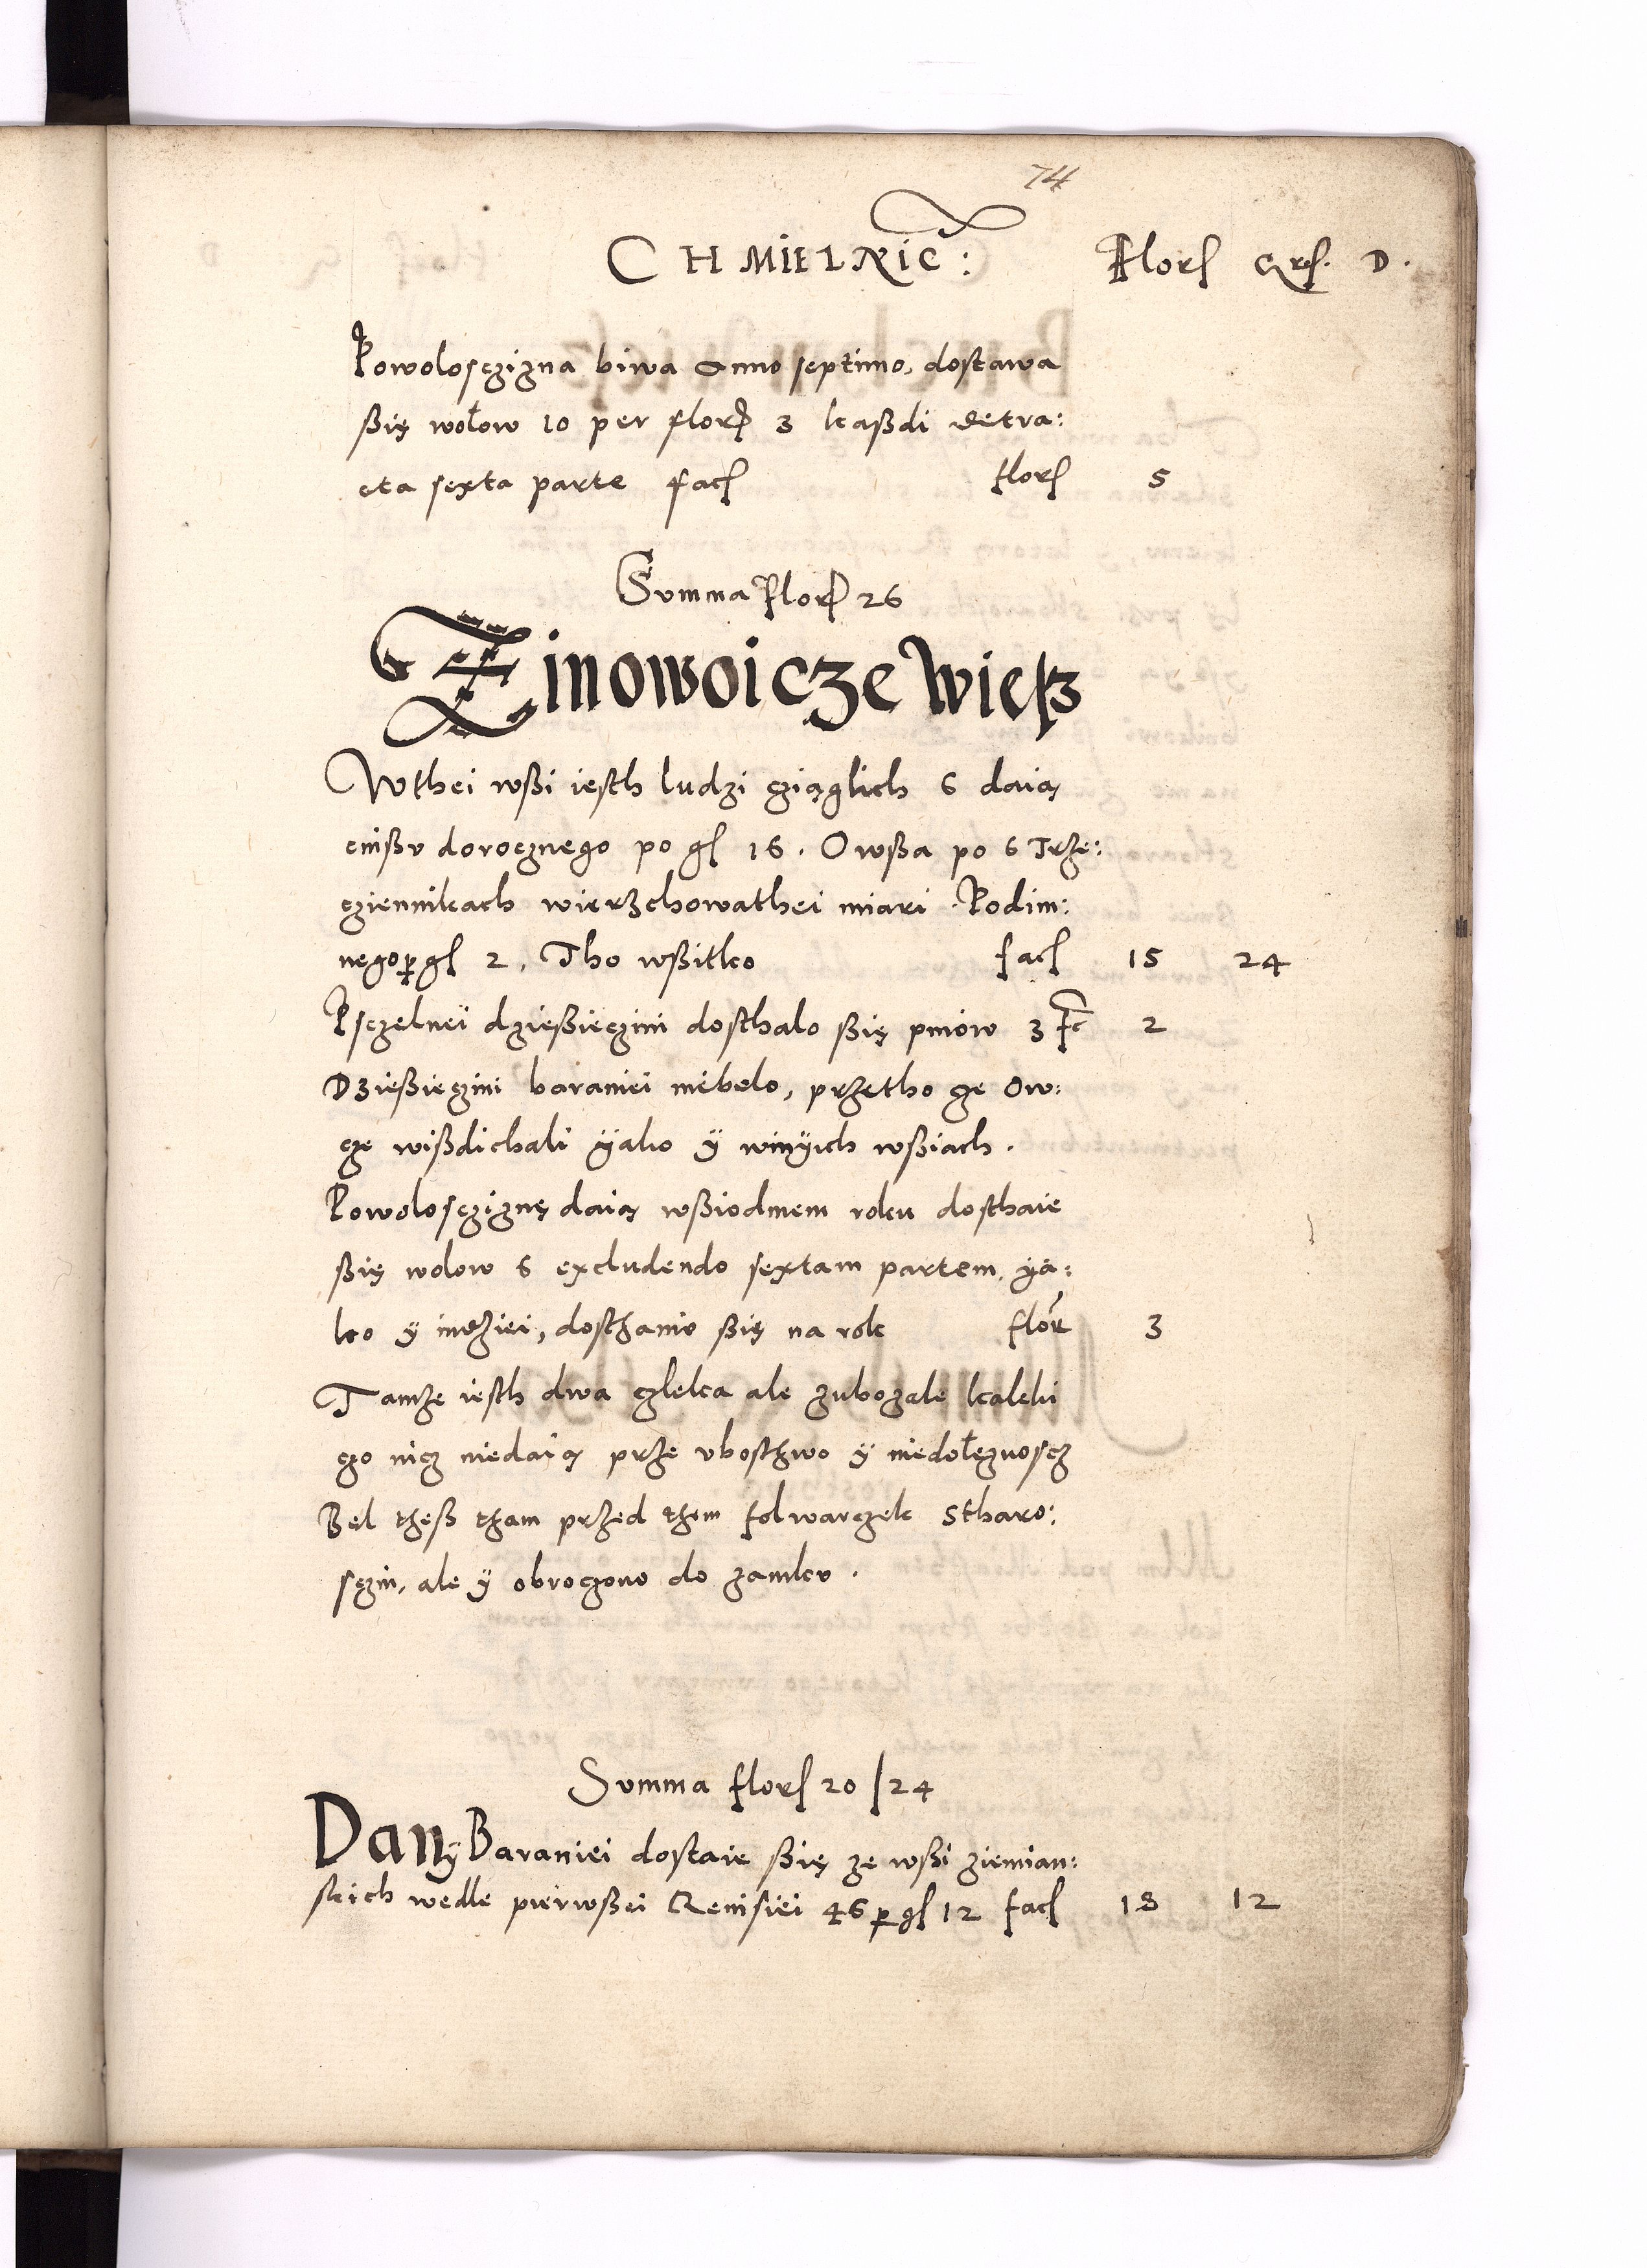 74
CHMIELNIC: Flor Gres. D.
Powolosczizna biwa Anno septimo, dostawa
ßię wołow 10 per flor 3 kaßdi detra:
cta sexta parte fac flor 5
Summa Flor 26
Zinowoicze Wieß
Wthei wßi iesth ludzi cziąglich 6 daią
cinßu dorocznego po g 16. Owßa po 6 Trze:
cziennikach wierzchowathei miari Podim:
nego p g 2, Tho wßitko fac 15 24
Psczelneÿ dzießiecżini dosthalo ßię pniow 3 fc 2
Dzießieczini baraniei niebelo, przetho ze Ow:
cze wißdichali ÿako ÿ winÿch wßiach.
Powolosczignę daią wßiodmem roku dosthaie
ßię wolow 6 excludendo sextam partem, ÿa:
ko ÿ indziei, dosthanie ßię na rok flor 3
Tamze iesth dwa czleka ale zubozale kaleki
czo nicz niedaią prze ubosthwo ÿ niedołęznoscz
Bel theß tham przed them folwarczek stharo:
sczin, ale ÿ obroczono do zamku.
Summa flor 20 / 24
Dany Baraniei dostaie ßię ze wßi ziemian:
skich wedle pierwßei Revisiei 46 p g 12 fac 18 12